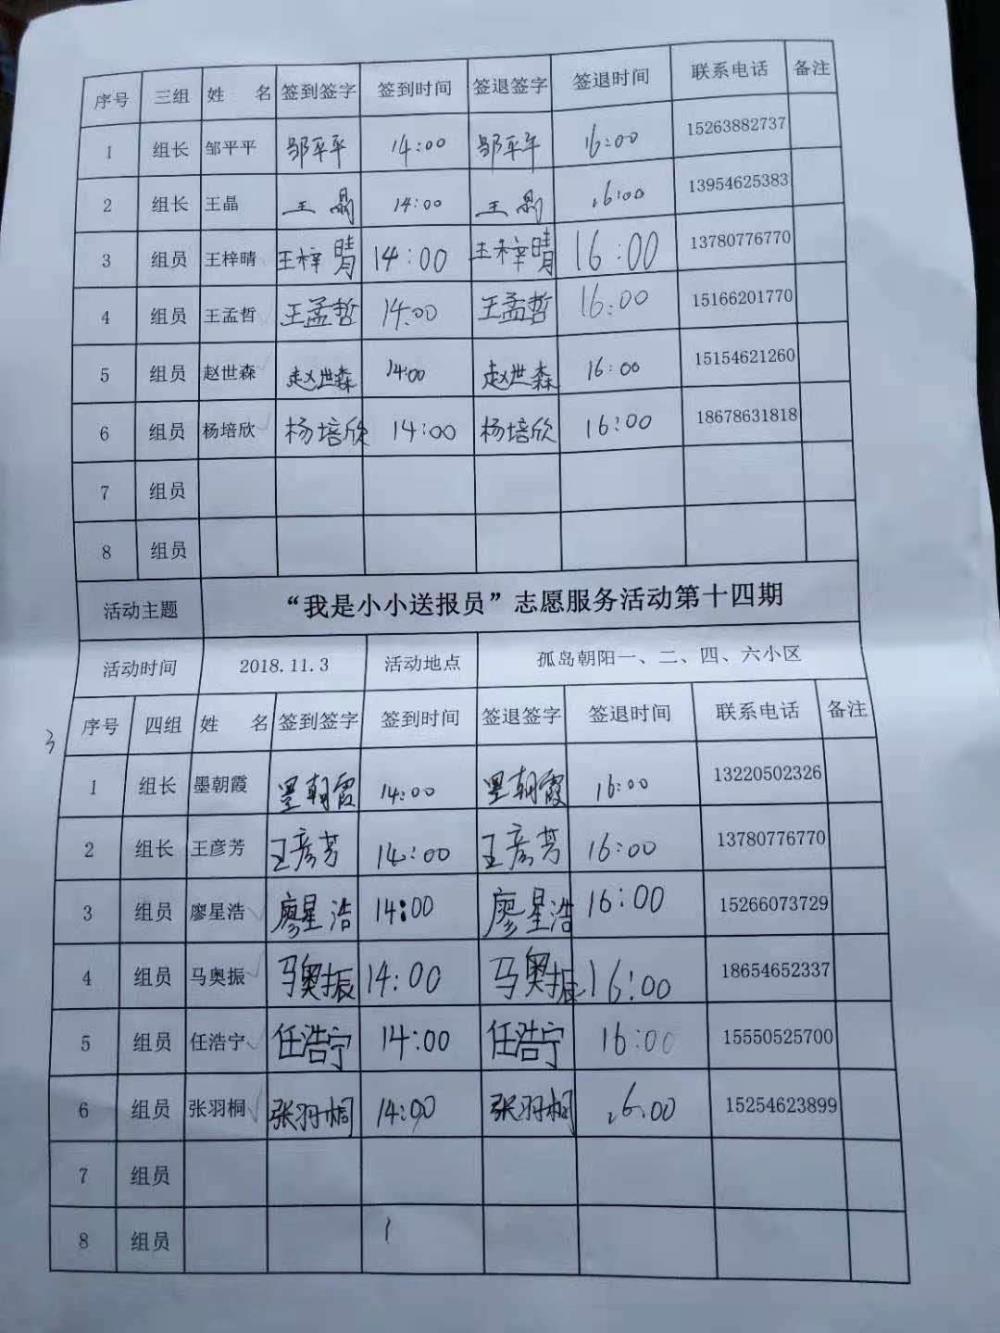 序号 三组 姓 名 签到签字 签到时间 签退签字 签退时间 联系电话 备注
1 组长 邹平平 邹平平 14:00 邹平平 16:00 15263882737
2 组长 王晶 王晶 14:00 王晶 16:00 13954625383
3 组员 王梓晴 王梓晴 14:00 王梓晴 16:00 13780776770
4 组员 王孟哲 王孟哲 14:00 王孟哲 16:00 15166201770
5 组员 赵世森 赵世森 14:00 赵世森 16:00 15154621260
6 组员 杨培欣 杨培欣 14:00 杨培欣 16:00 18678631818
7 组员
8 组员
活动主题 “我是小小送报员”志愿服务活动第十四期
活动时间 2018.11.3 活动地点 孤岛朝阳一、二、四、六小区
序号 四组 姓 名 签到签字 签到时间 签退签字 签退时间 联系电话 备注
1 组长 墨朝霞 墨朝霞 14:00 墨朝霞 16:00 13220502326
2 组长 王彦芳 王彦芳 14:00 王彦芳 16:00 13780776770
3 组员 廖星浩 廖星浩 14:00 廖星浩 16:00 15266073729
4 组员 马奥振 马奥振 14:00 马奥振 16:00 18654652337
5 组员 任浩宁 任浩宁 14:00 任浩宁 16:00 15550525700
6 组员 张羽桐 张羽桐 14:00 张羽桐 16:00 15254623899
7 组员
8 组员